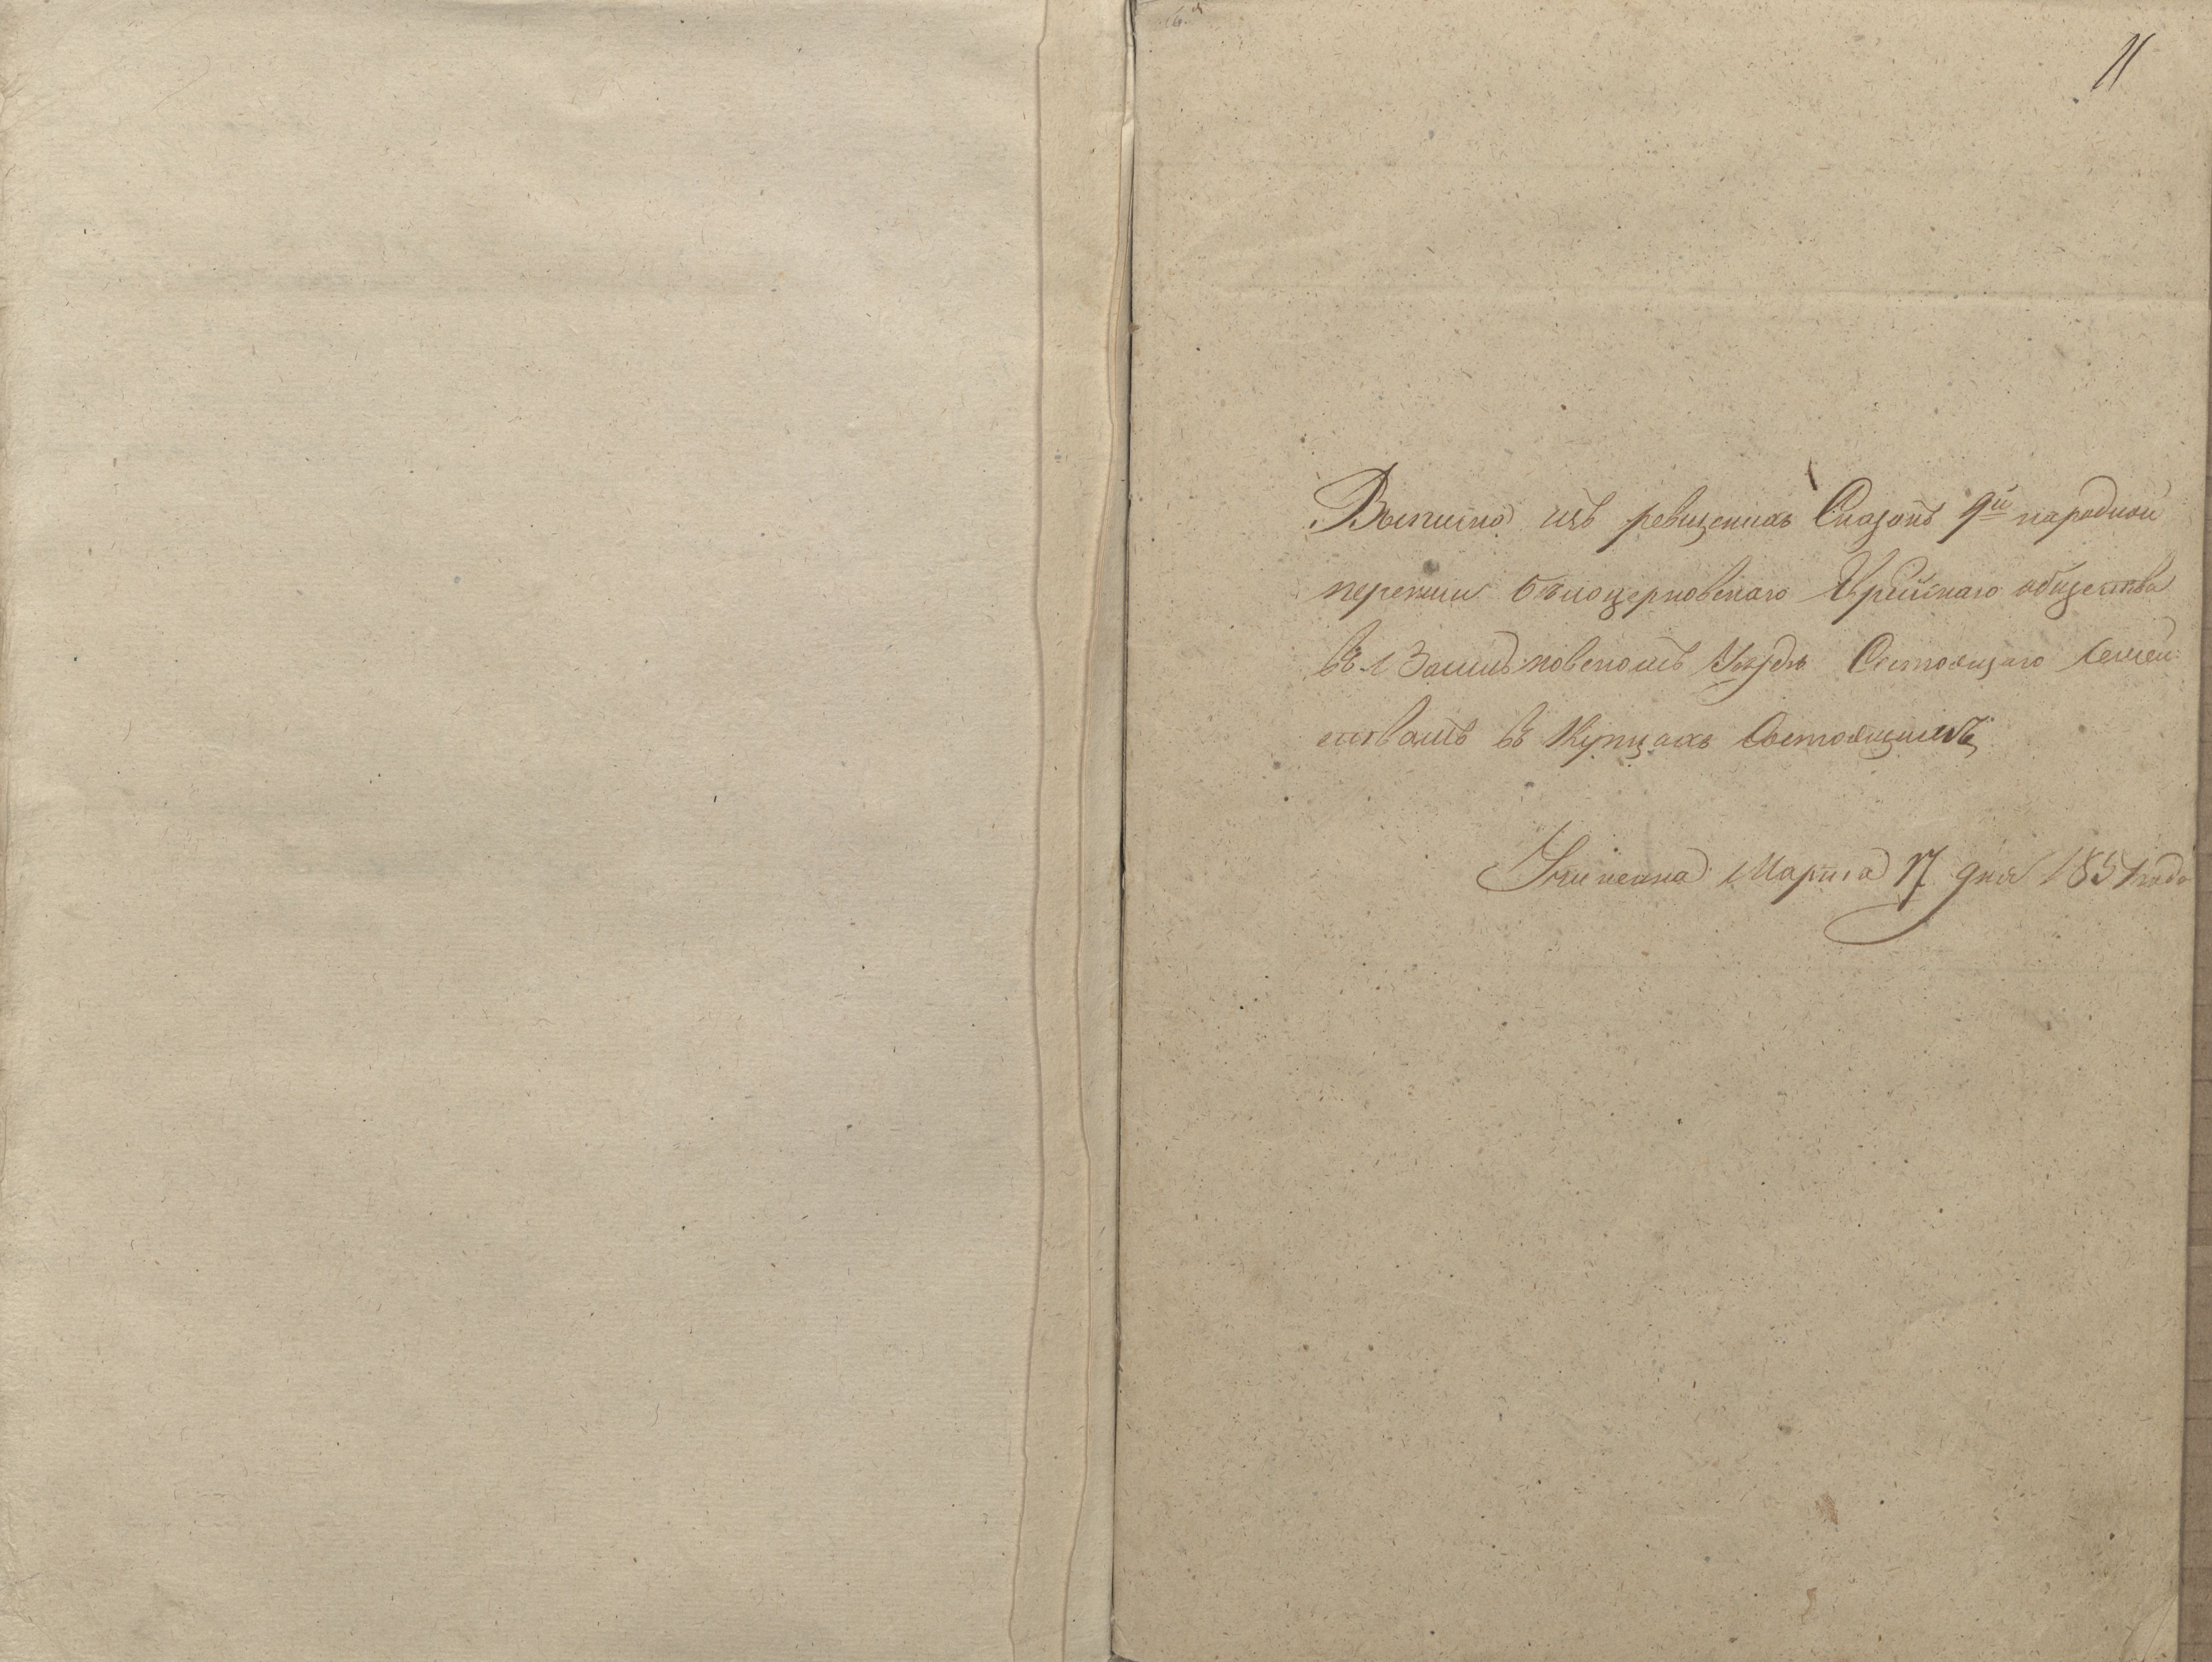 11
Выписка изъ ревизскихъ Сказокъ 9й народной
переписи Белоцерковскаго Еврейскаго общества
въ Васильковскомъ Уездѣ Состоящаго Семей-
ствамъ въ Купцахъ Состоящимъ
Учиненна Марта 17 дня 1851 года